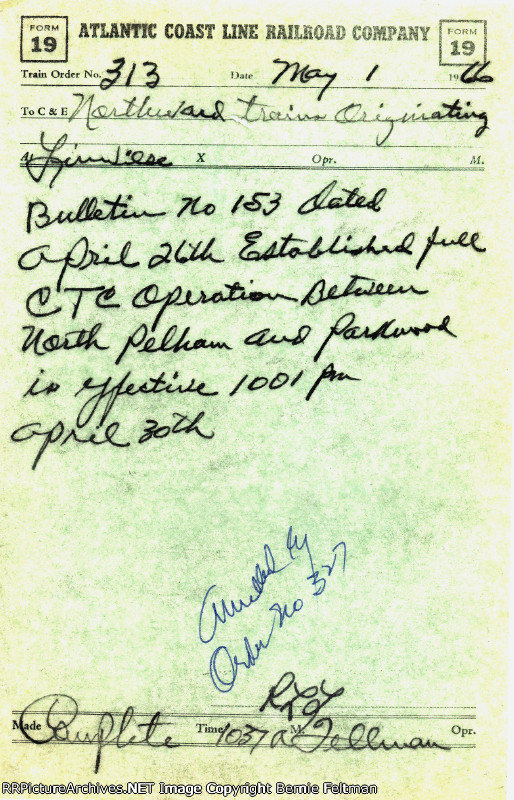 FORM 19 ATLANTIC COAST LINE RAILROAD COMPANY FORM 19
Train Order No. 313 Date May 1 1966
To C & E Northward trains Originating
At X Opr. M.
Bulletin No 153 dated
April 26th Established full
CTC Operation Between
North Pelham and Parkwood
is effective 1001 pm
April 30th
Annulled by
Order No 327
Made Complete Time 1037 A M. Fellman Opr.
RRPictureArchives.NET Image Copyright Bernie Feltman